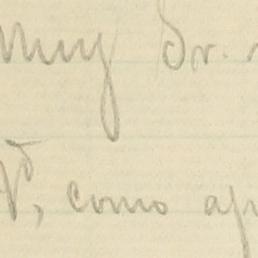 Muy Sr.
Vd, como